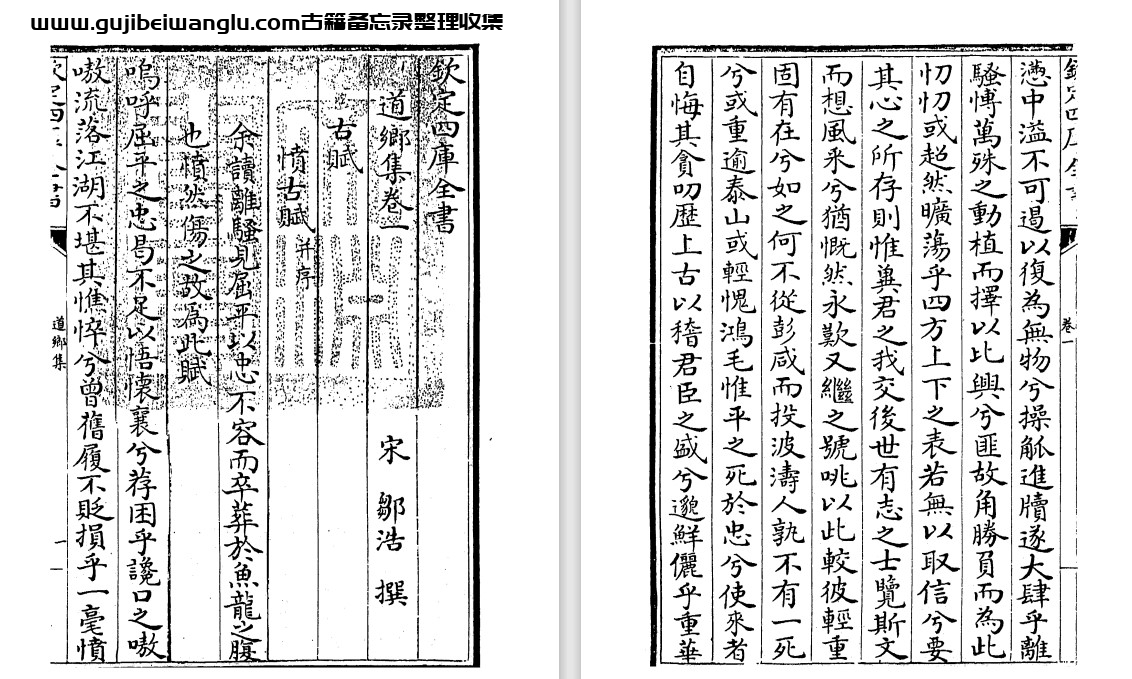 www.gujibeiwanglu.com古籍备忘录整理收集
欽定四庫全書
道鄉集卷一 宋 鄒浩 撰
古賦
憤古賦 并序
余讀離騷見屈平以忠不容而卒葬於魚龍之腹
也憤然傷之故爲此賦
嗚呼屈平之忠曷不足以悟懷襄兮荐困乎讒口之嗷
嗷流落江湖不堪其憔悴兮曾舊履不貶損乎一毫憤
道鄉集
一
卷一
懣中溢不可遏以復為無物兮操觚進牘遂大肆乎離
騷慱萬殊之動植而擇以比興兮匪故角勝負而為此
忉忉或超然曠蕩乎四方上下之表若無以取信兮要
其心之所存則惟冀君之我交後世有志之士覽斯文
而想風釆兮猶慨然永歎又繼之號咷以此較彼輕重
固有在兮如之何不從彭咸而投波濤人孰不有一死
兮或重逾泰山或輕愧鴻毛惟平之死於忠兮使來者
自悔其貪叨歷上古以稽君臣之盛兮邈鮮儷乎重華